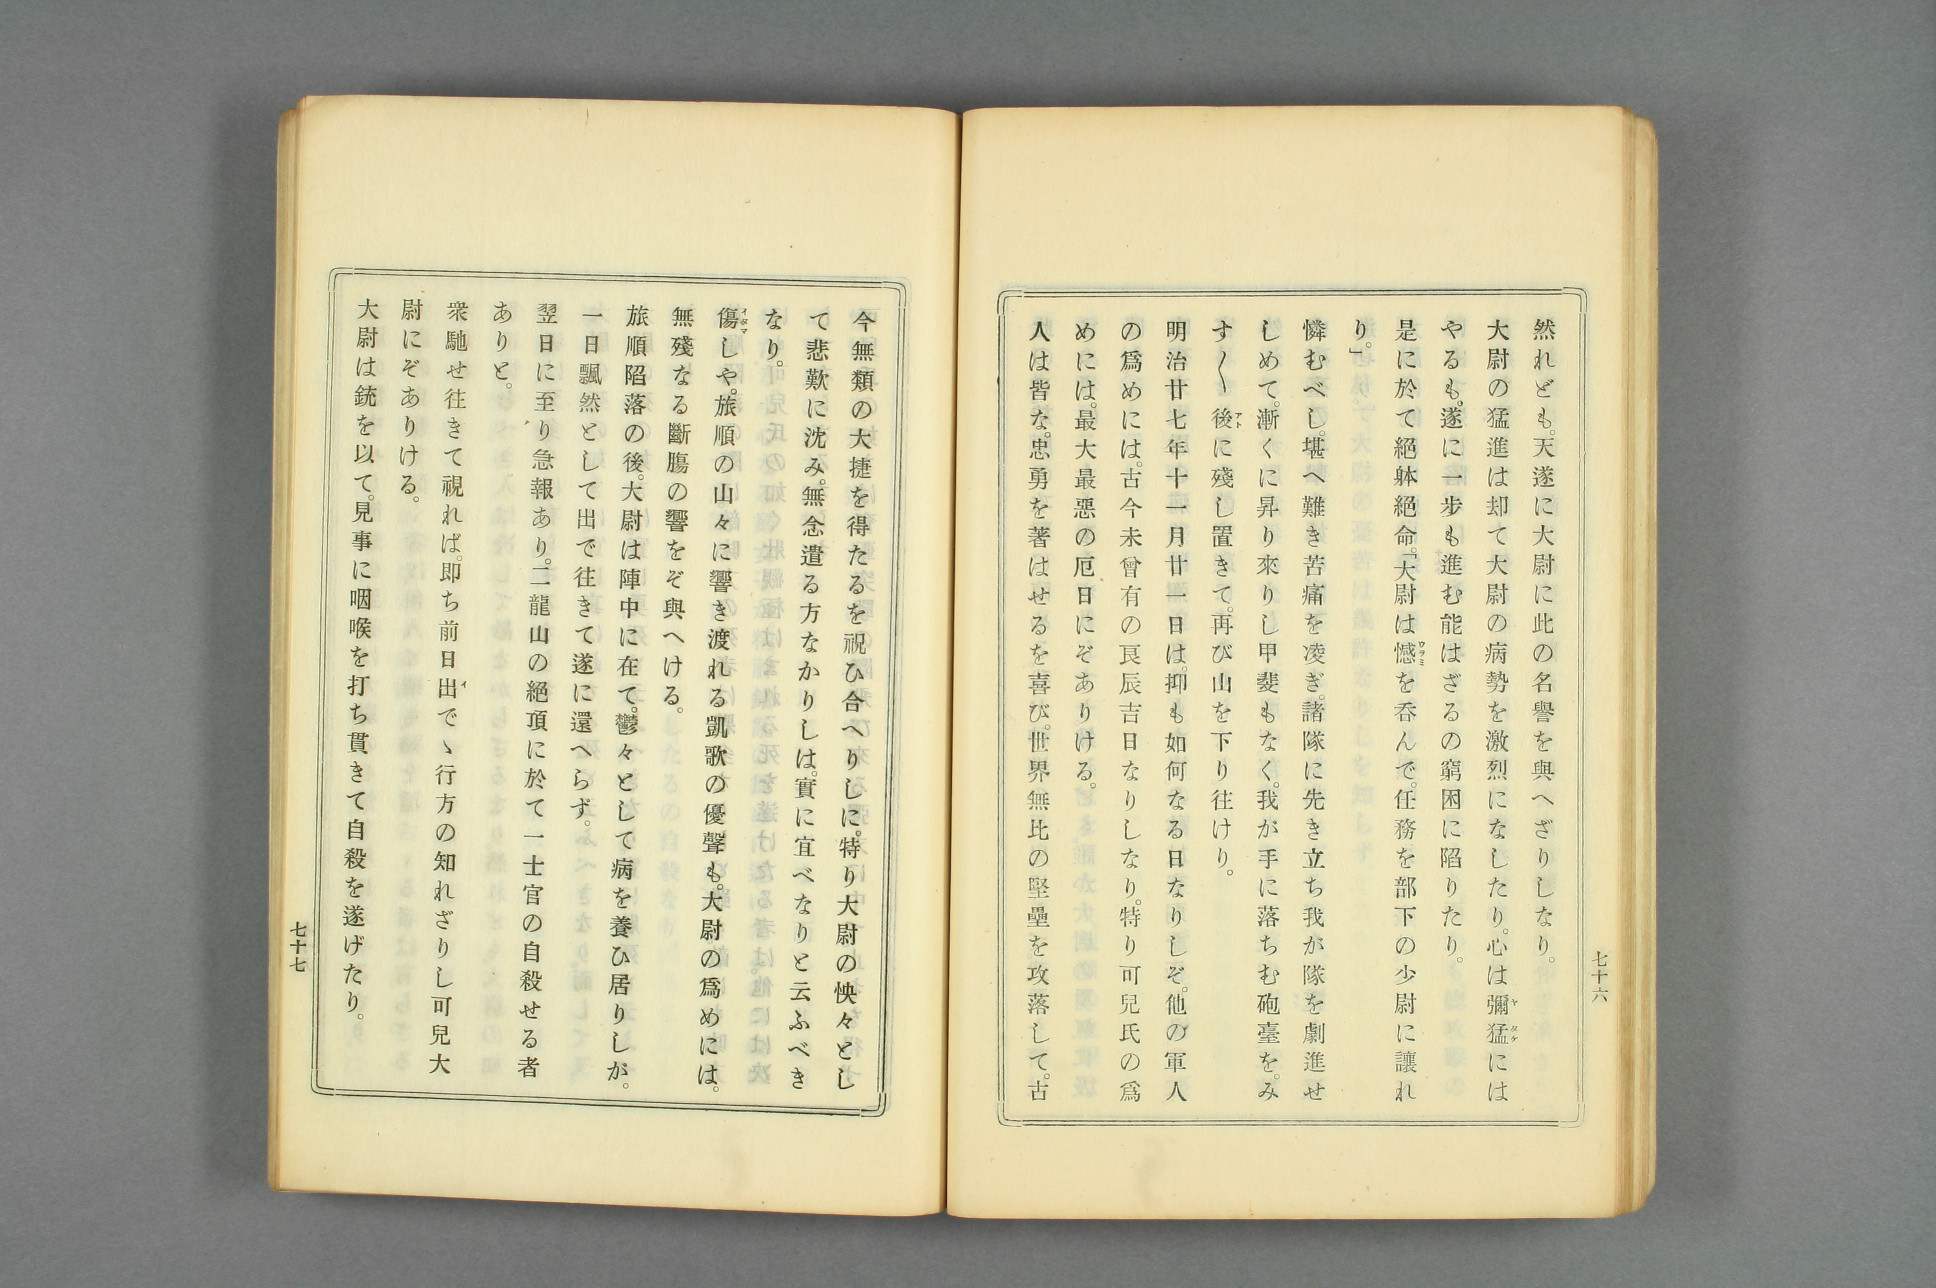 然れども。天遂に大尉に此の名譽を與へざりしなり。
大尉の猛進は却て大尉の病勢を激烈になしたり。心は彌猛には
ヤタケ
やるも。遂に一歩も進む能はざるの窮困に陷りたり。
是に於て絕躰絕命。「大尉は憾を呑んで。任務を部下の少尉に讓れ
ウラミ
り。」
憐むべし。堪へ難き苦痛を凌ぎ。諸隊に先き立ち我が隊を劇進せ
しめて。漸くに昇り來りし甲斐もなく。我が手に落ちむ砲臺を。み
す〱後に殘し置きて。再び山を下り往けり。
アト
明治廿七年十一月廿一日は。抑も如何なる日なりしぞ。他の軍人
の爲めには。古今未曾有の良辰吉日なりしなり。特り可兒氏の爲
めには。最大最惡の厄日にぞありける。
人は皆な。忠勇を著はせるを喜び。世界無比の堅壘を攻落して。古
七十六
今無類の大捷を得たるを祝ひ合へりしに。特り大尉の怏々とし
て悲歎に沈み。無念遣る方なかりしは。實に宜べなりと云ふべき
なり。
傷しや。旅順の山々に響き渡れる凱歌の優聲も。大尉の爲めには。
イタマ
無殘なる斷膓の響をぞ與へける。
旅順陷落の後。大尉は陣中に在て。鬱々として病を養ひ居りしが。
一日飄然として出で往きて遂に還へらず。
翌日に至り急報あり。二龍山の絕頂に於て一士官の自殺せる者
ありと。
衆馳せ往きて視れば。即ち前日出でゝ行方の知れざりし可兒大
イ
尉にぞありける。
大尉は銃を以て。見事に咽喉を打ち貫きて自殺を遂げたり。
七十七